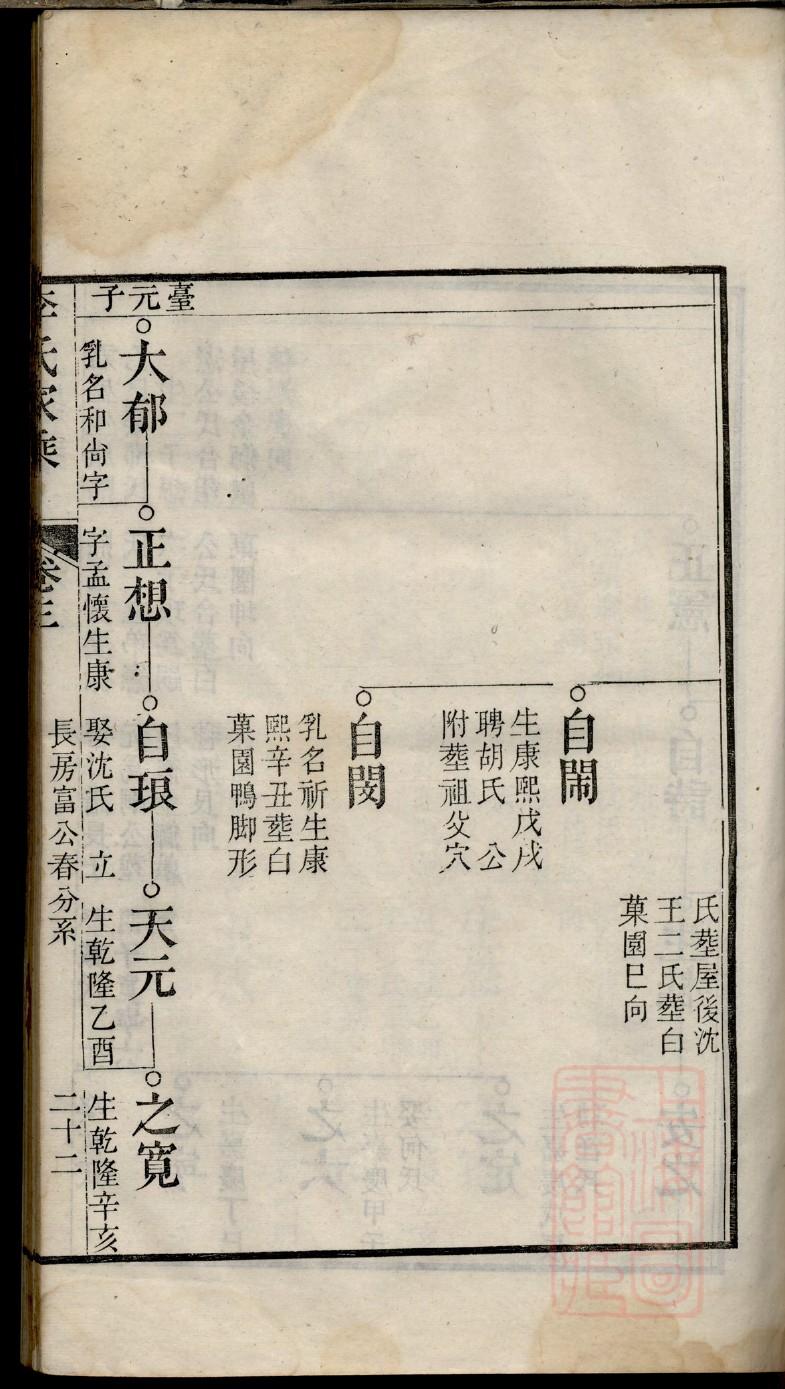 氏塟屋後沈
王二氏塟白
菓園巳向
自閙
生康熙戊戌
聘胡氏 公
附塟祖父穴
自閔
乳名祈生康
熙辛丑塟白
菓園鴨脚形
臺元子
大郁
乳名和尚字
正想
字孟懷生康
自琅
娶沈氏 立
天元
生乾隆乙酉
之寛
生乾隆辛亥
李氏家乘
卷三
長房富公春分系
二十二